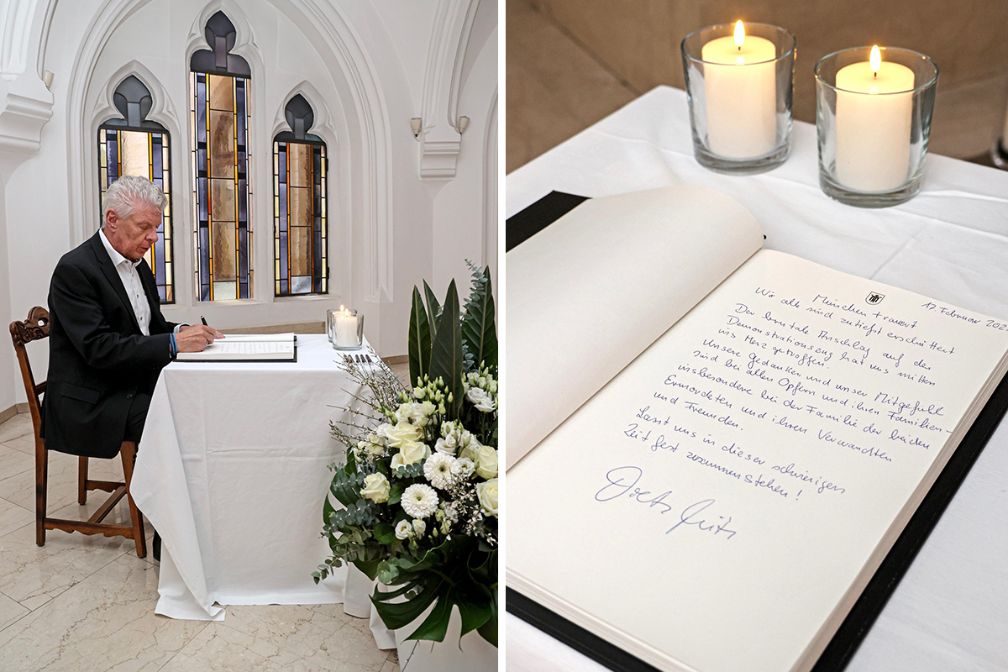 17. Februar 202
München trauert
Wir alle sind zutiefst erschüttert
Der brutale Anschlag auf den
Demonstrationszug hat uns mitten
ins Herz getroffen.
Unsere Gedanken und unser Mitgefühl
sind bei allen Opfern und ihren Familien -
insbesondere bei der Familie der beiden
Ermordeten und ihren Verwandten
und Freunden.
Lasst uns in dieser schwierigen
Zeit fest zusammenstehen!